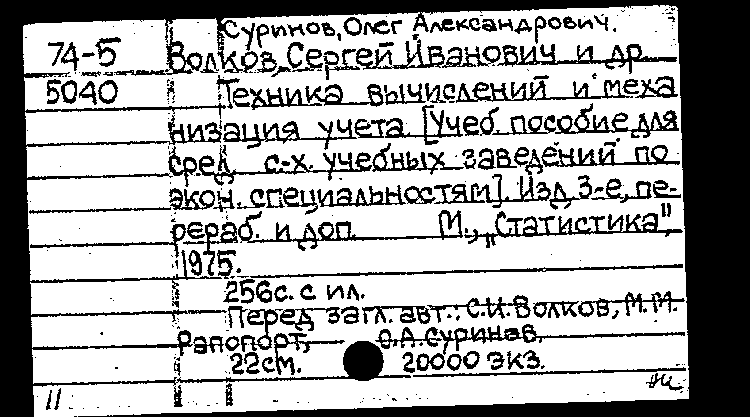 Суринов, Олег Александрович.
74-5 Волков, Сергей Иванович и др.
5040 Техника вычислений и меха
низация учета [Учеб. пособие для
сред. с-х. учебных заведений по
экон. специальностям]. Изд. 3-е, пе-
рераб. и доп. М., „Статистика",
1975.
256с. с ил.
Перед загл. авт.: С.И. Волков, М.М.
Рапопорт, О.А. Суринов.
22см. 20000 экз.
11